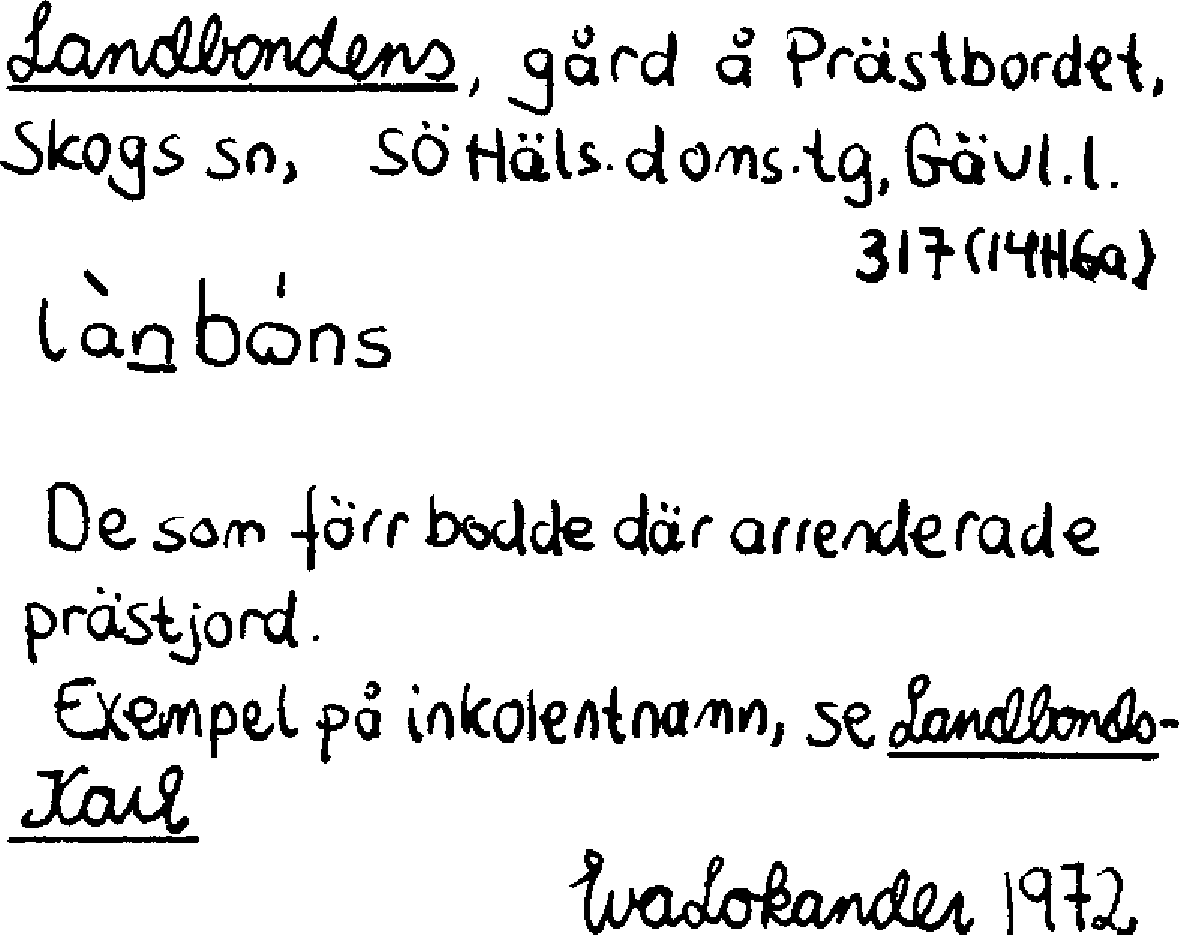 Landbondens, gård å Prästbordet,
Skogs sn, SöHäls.doms.tg, Gävl.l.
317(14H6a)
lànbώns
De som förr bodde där arrenderade
prästjord.
Exempel på inkolentnamn, se Landbonds-
Karl
Eva Lokander 1972